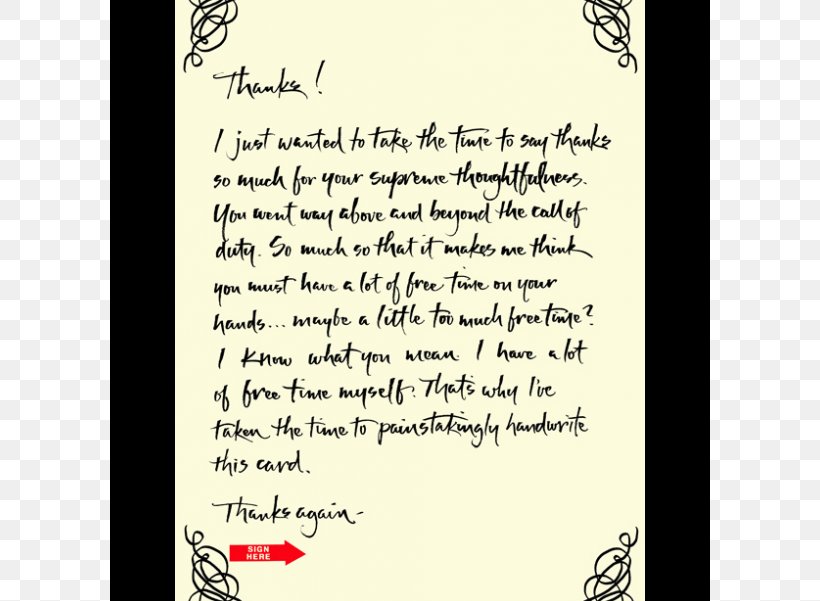 Thanks!
I just wanted to take the time to say thanks
so much for your supreme thoughtfulness.
You went way above and beyond the call of
duty. So much so that it makes me think
you must have a lot of free time on your
hands... maybe a little too much free time?
I know what you mean. I have a lot
of free time myself. That's why I've
taken the time to painstakingly handwrite
this card.
Thanks again-
SIGN
HERE